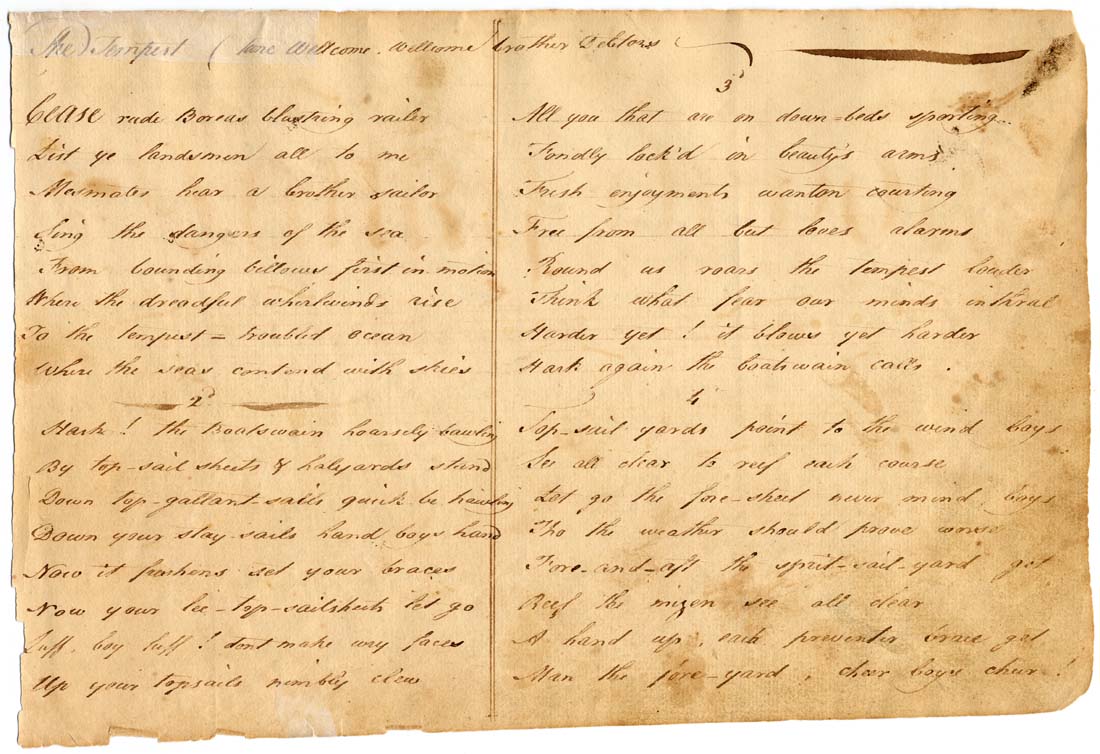 The Tempest ( tune Wellcome. Wellcome brother Debtors
Cease rude Boreas blustring railer
List ye landsmen all to me
Mesmates hear a brother sailor
Sing the dangers of the sea
From bounding billows first in motion
Where the dreadful whirlwinds rise
To the tempest = troubled ocean
Where the seas contend with skies
2d
Hark! the Boatswain hoarsely bawling
By top-sail sheets & halyards stand
Down top-gallant-sails quick be hawling
Down your stay-sails hand boys hand
Now it freshens set your braces
Now your lee-top-sailsheets let go
Luff, boy Luff! dont make wry faces
Up your topsails nimbly clew
3d
All you that are on down-beds sporting
Fondly lock'd in beauty's arms
Fresh enjoyments wanton courting
Free from all but loves alarms
Round us roars the tempest louder
Think what fear our minds inthral
Harder yet! it blows yet harder
Hark again the boatswain calls.
4
Top-sail yards point to the wind boys
See all clear to reef each course
Let go the fore-sheet never mind boys
Tho the weather should prove worse
Fore-and-aft the sprit-sail-yard get
Reef the mizen see all clear
A hand up, each preventer brace get
Man the fore-yard, cheer boys cheer!